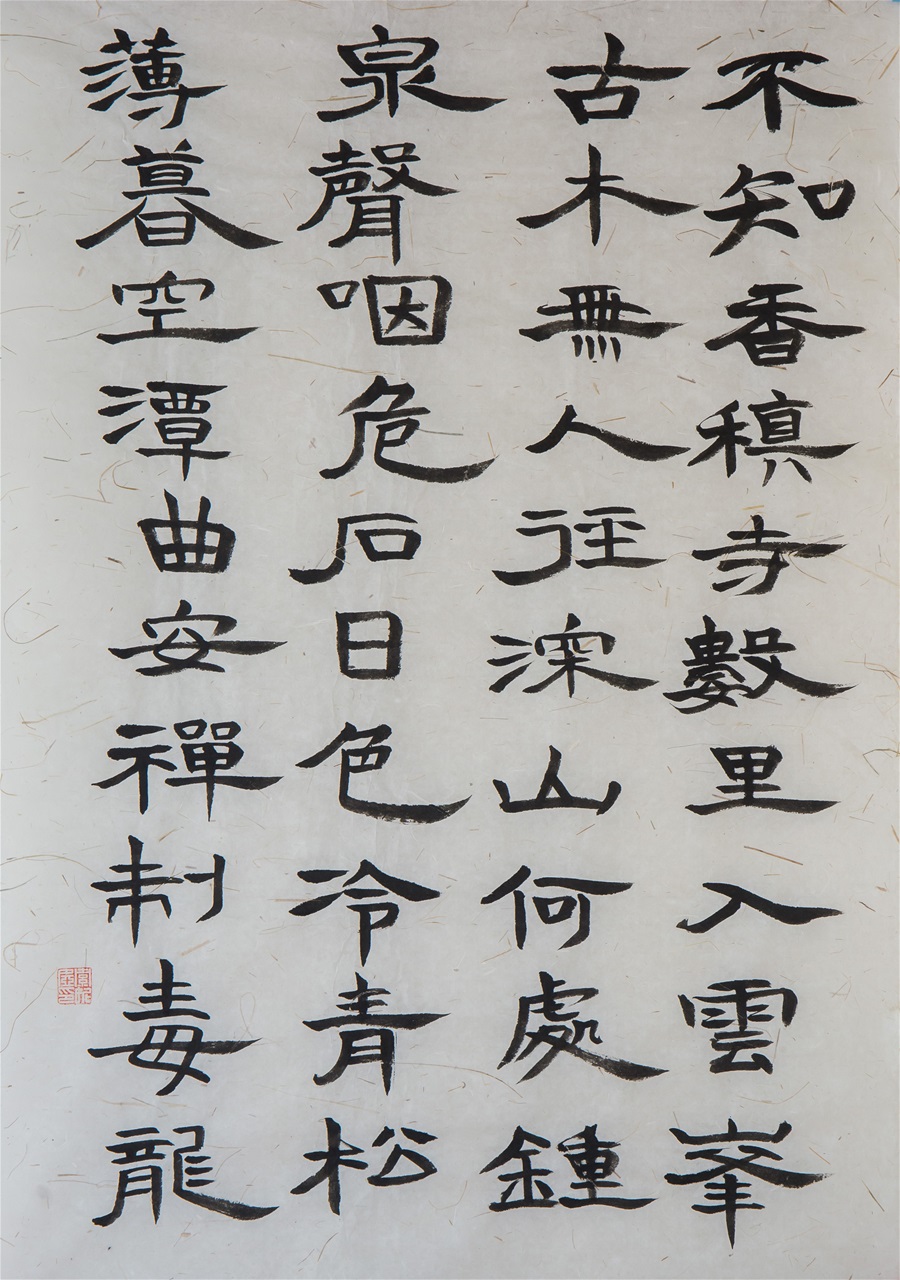 不知香積寺數里入雲峯
古木無人徑深山何處鍾
泉聲咽危石日色冷青松
薄暮空潭曲安禪制毒龍